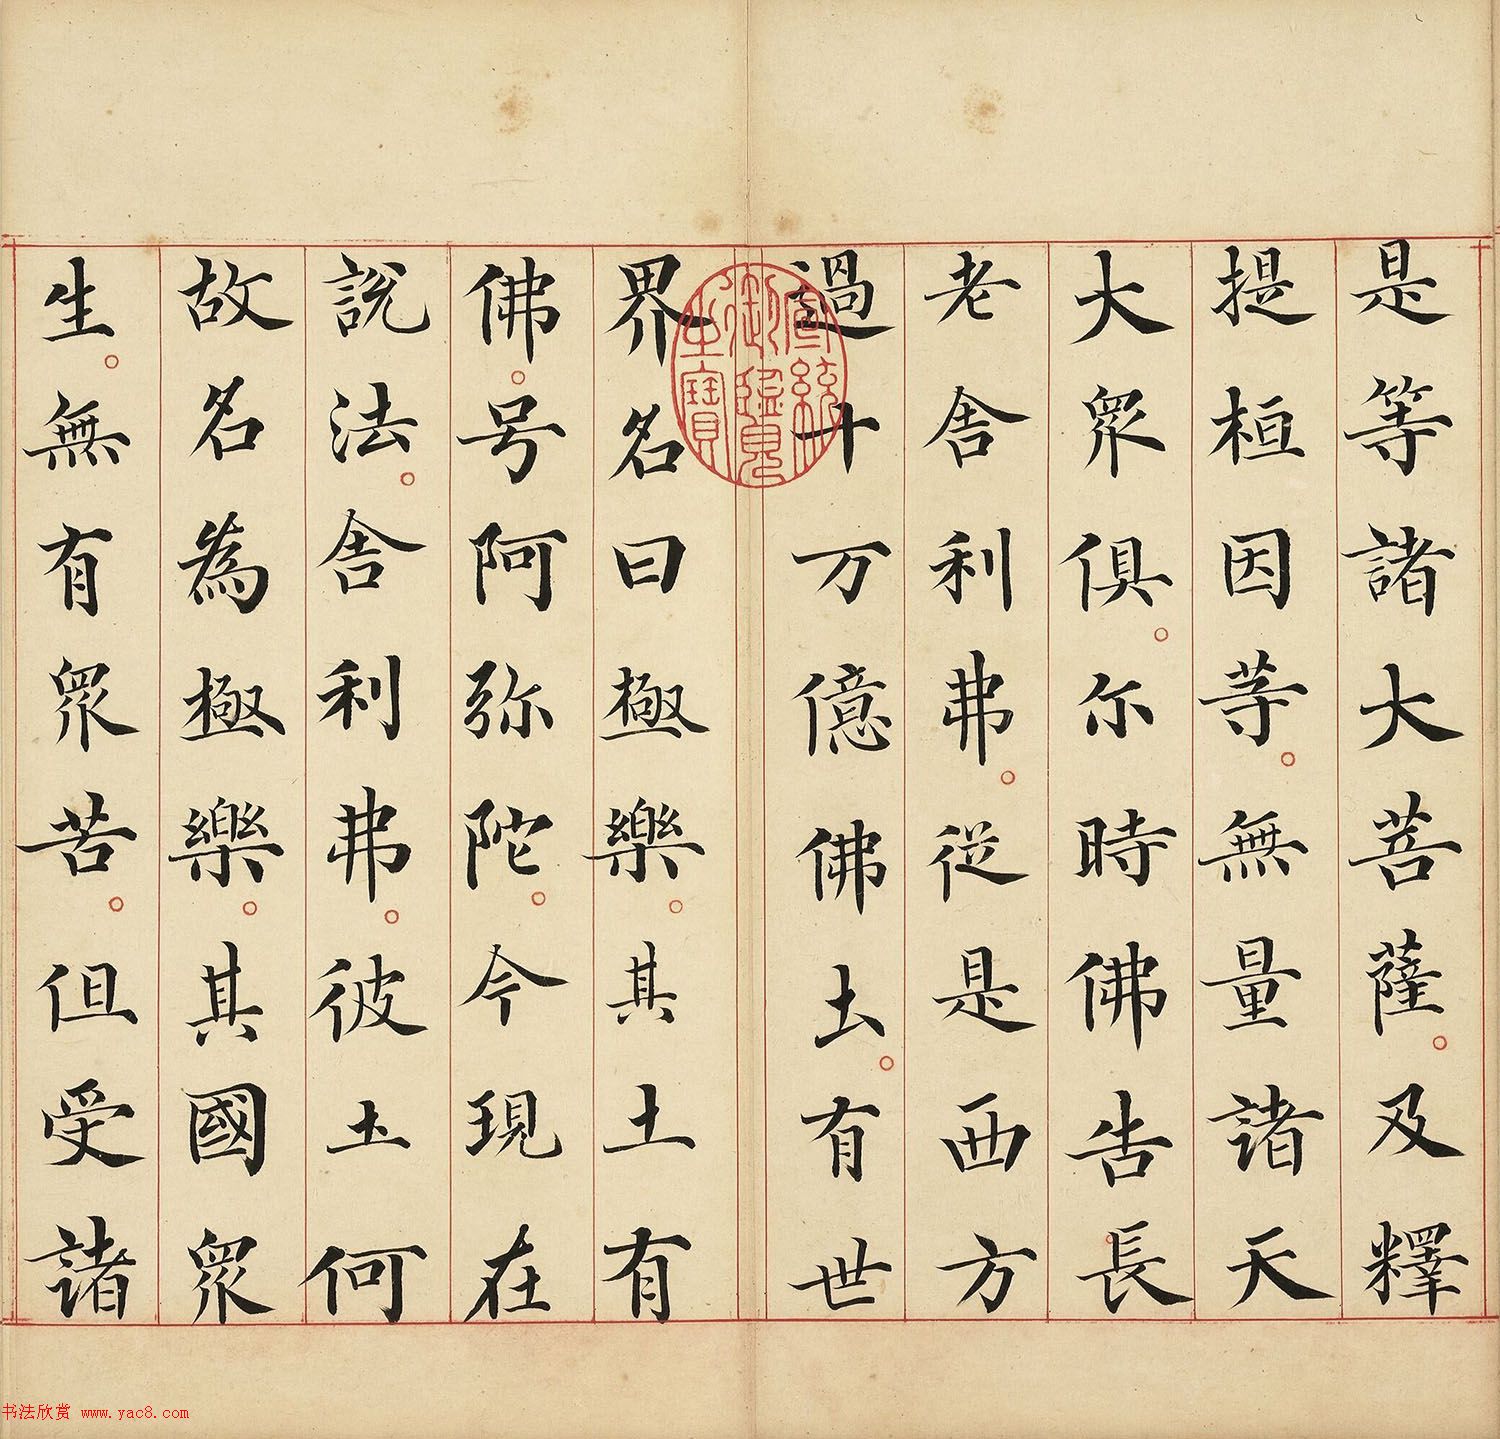 是等諸大菩薩。及釋
提桓因等。無量諸天
大眾俱。尔時佛告長
老舍利弗。從是西方
過十万億佛土。有世
界名曰極樂。其土有
佛。号阿弥陀。今現在
說法。舍利弗。彼土何
故名為極樂。其國眾
生。無有眾苦。但受諸
宣統御鑑之寶
书法欣赏 www.yac8.com